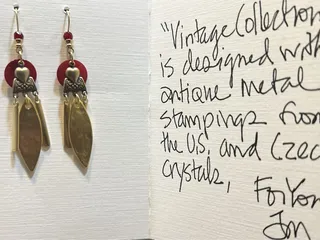 "Vintage Collection
is designed with
antique metal
stampings from
the U.S. and Czec
crystals,
For You
Jon